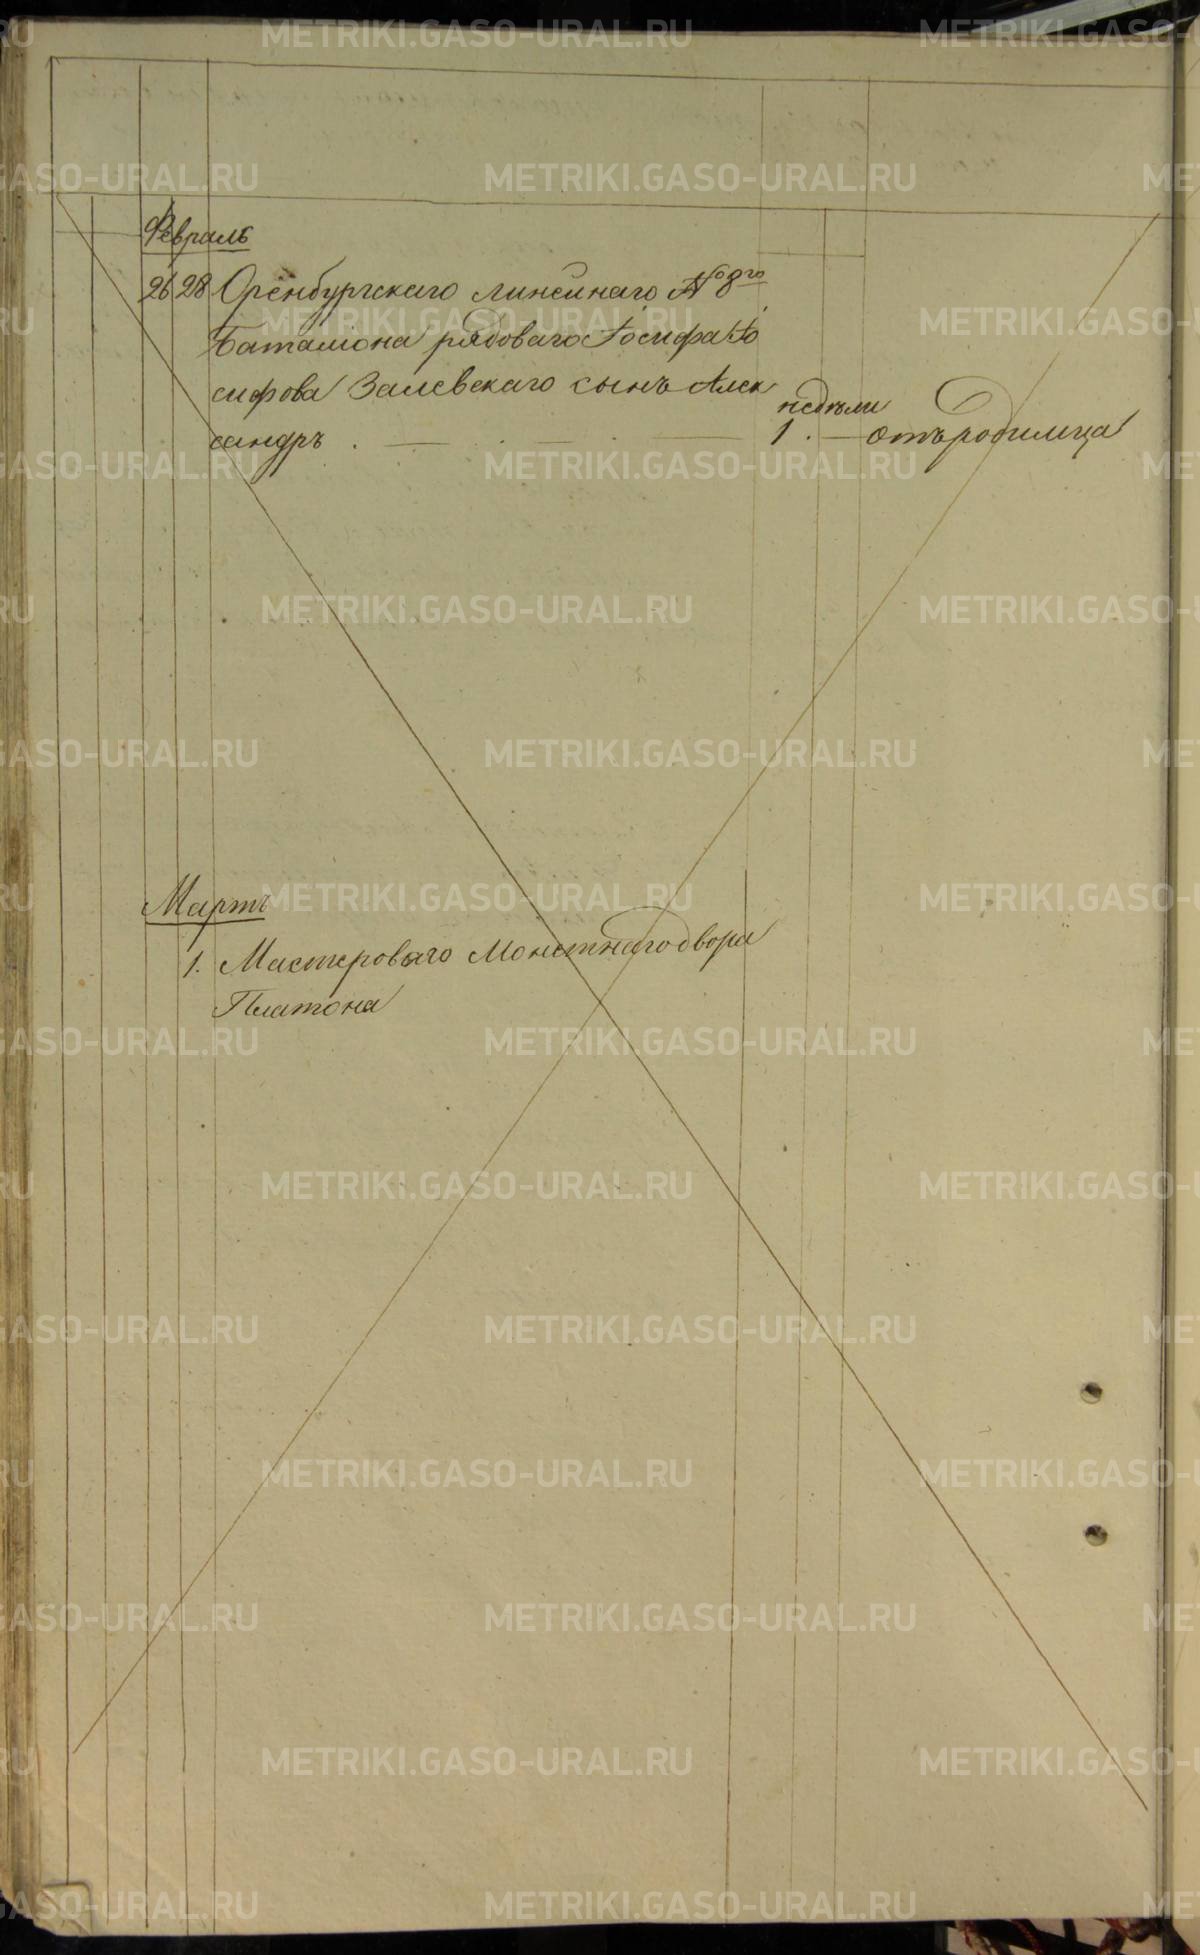 Февраль
26 28 Оренбургскаго линейнаго № 8го
Баталіона рядоваго Іосифа Іо
сифова Залевскаго сынъ Алек
сандръ . — . — недѣли 1. — отъ родимца
Мартъ
1. Мастероваго Монетнаго двора
Платона
METRIKI.GASO-URAL.RU